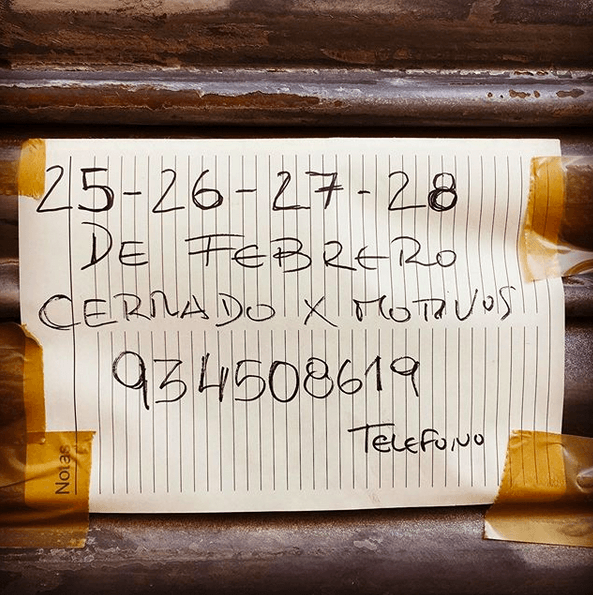 25-26-27-28
DE FEBRERO
CERRADO X MOTIVOS
934508619
TELEFONO
Notas